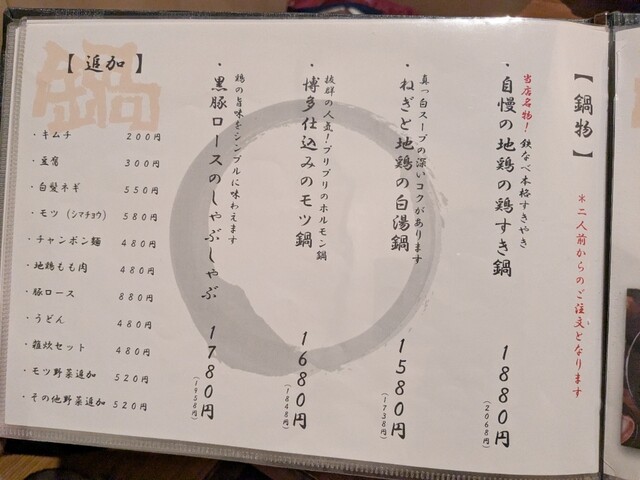 【鍋物】
＊二人前からのご注文となります
当店名物！鉄なべ本格すきやき
・自慢の地鶏の鶏すき鍋 1880円
(2068円)
真っ白スープの深いコクがあります
・ねぎと地鶏の白湯鍋 1580円
(1738円)
抜群の人気！プリプリのホルモン鍋
・博多仕込みのモツ鍋 1680円
(1848円)
鶏の旨味をシンプルに味わえます
・黒豚ロースのしゃぶしゃぶ 1780円
(1958円)
鍋
【追加】
・キムチ 200円
・豆腐 300円
・白髪ネギ 550円
・モツ（シマチョウ） 580円
・チャンポン麺 480円
・地鶏もも肉 480円
・豚ロース 880円
・うどん 480円
・雑炊セット 480円
・モツ野菜追加 520円
・その他野菜追加 520円